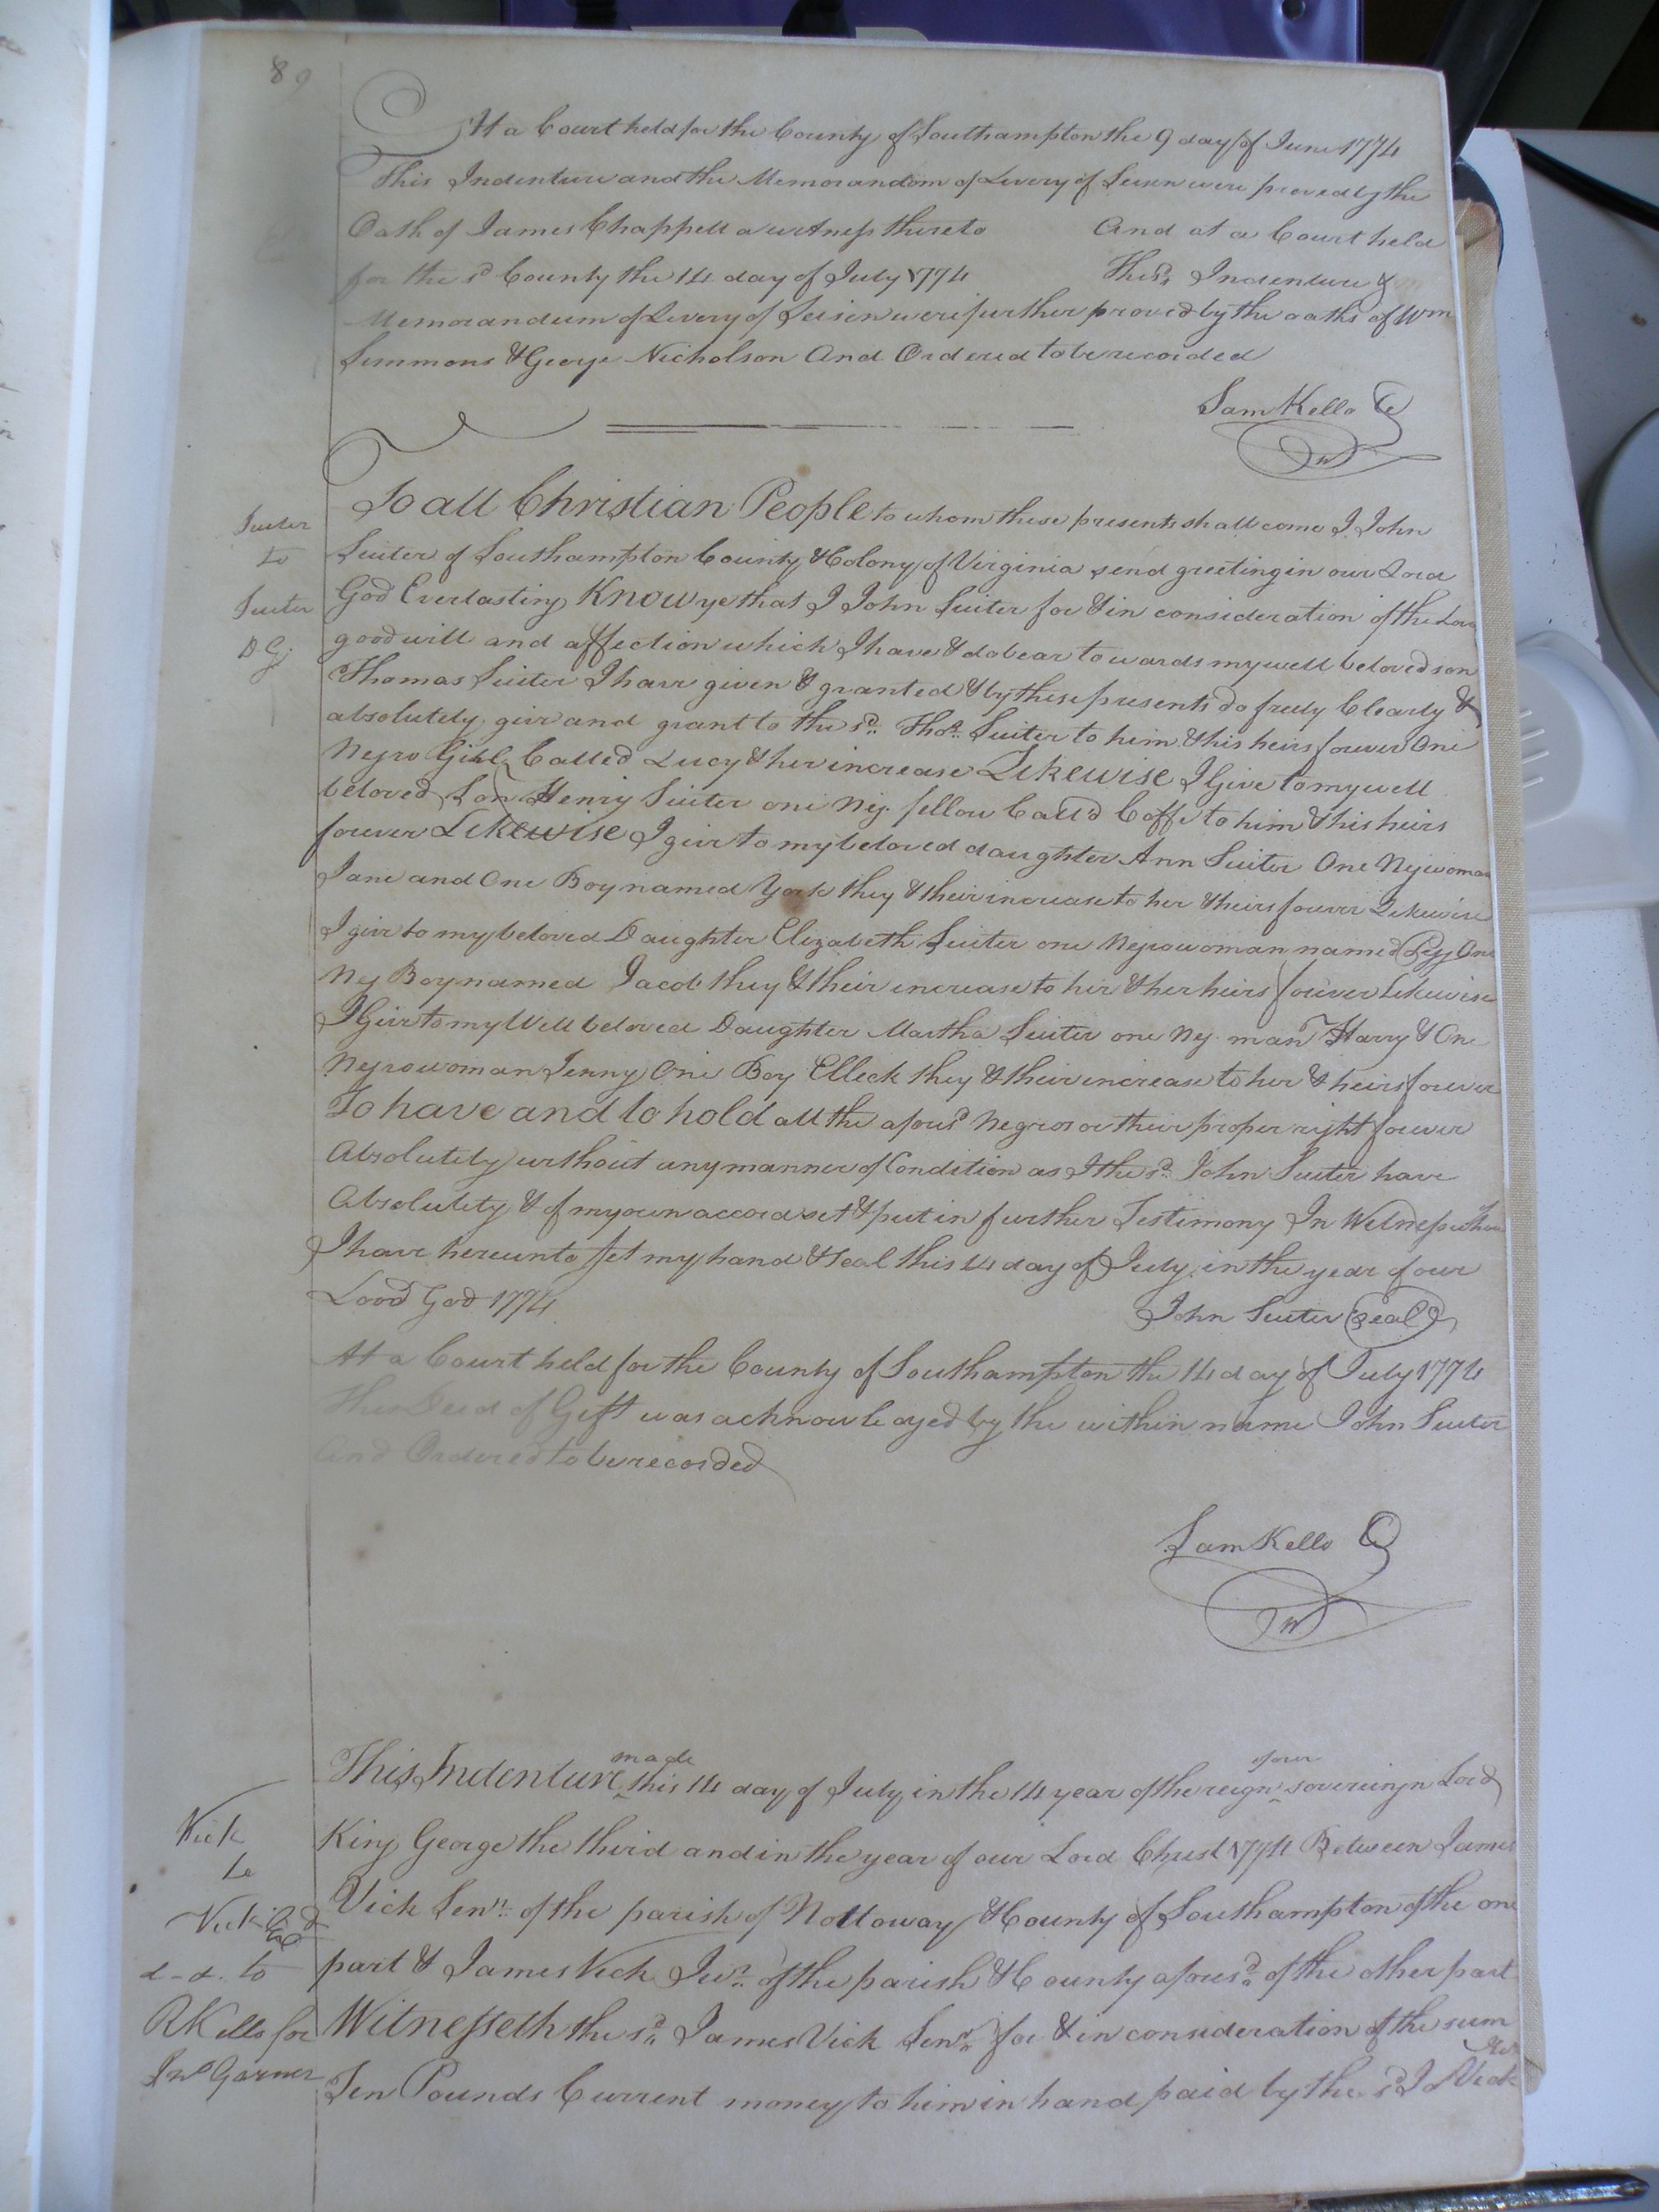 89
At a Court held for the County of Southampton the 9 day of June 1774
This Indenture and the Memorandom of Livery of Seisin were proved by the
Oath of James Chappell a witness thereto And at a Court held
for the sd County the 14 day of July 1774 The sd Indenture &
Memorandum of Livery of Seisin were further proved by the oaths of Wm
Simmons & George Nicholson And Ordered to be recorded
Sam Kello
To all Christian People to whom these presents shall come I John
Suiter of Southampton County & Colony of Virginia send greeting in our Lord
God Everlasting Know ye that I John Suiter for & in consideration of the Love
good will and affection which I have & do bear towards my well beloved son
Thomas Suiter I have given & granted & by these presents do freely Clearly &
absolutely give and grant to the sd. Thos. Suiter to him & his heirs forever One
Negro Girl Called Lucy & her increase Likewise I Give to my well
beloved Son Henry Suiter one Neg. fellow Call'd Coffe to him & his heirs
forever Likewise I give to my beloved daughter Ann Suiter One Neg woman
Jane and One Boy named York they & their increase to her & heirs forever Likewise
I give to my beloved Daughter Elizabeth Suiter one Negro woman named Pegg One
Neg Boy named Jacob they & their increase to her & her heirs forever Likewise
I Give to my Well beloved Daughter Martha Suiter one Neg. man Harry & One
Negro woman Jenny One Boy Elleck they & their increase to her & heirs forever
To have and to hold all the aforesd Negros or their proper right forever
Absolutely without any manner of Condition as I the sd. John Suiter have
Absolutely & of my own accord set & put in further Testimony In Witness
I have hereunto set my hand & Seal this 14 day of July in the year of our
Lord God 1774
John Suiter Seal
At a Court held for the County of Southampton the 14 day of July 1774
This Deed of Gift was acknowledged by the within name John Suiter
and Ordered to be recorded
Sam Kello
Suiter
to
Suiter
D G
This Indenture made this 14 day of July in the 14 year of the reign of our sovereign Lord
King George the third and in the year of our Lord Christ 1774 Between James
Vick Senr. of the parish of Nottoway & County of Southampton of the one
part & James Vick Junr. of the parish & County aforesd. of the other part
Witnesseth the sd. James Vick Senr. for & in consideration of the sum
Ten Pounds Current money to him in hand paid by the sd Js Vick
Vick
to
Vick
d-d. to
R Kello for
Jno Garner